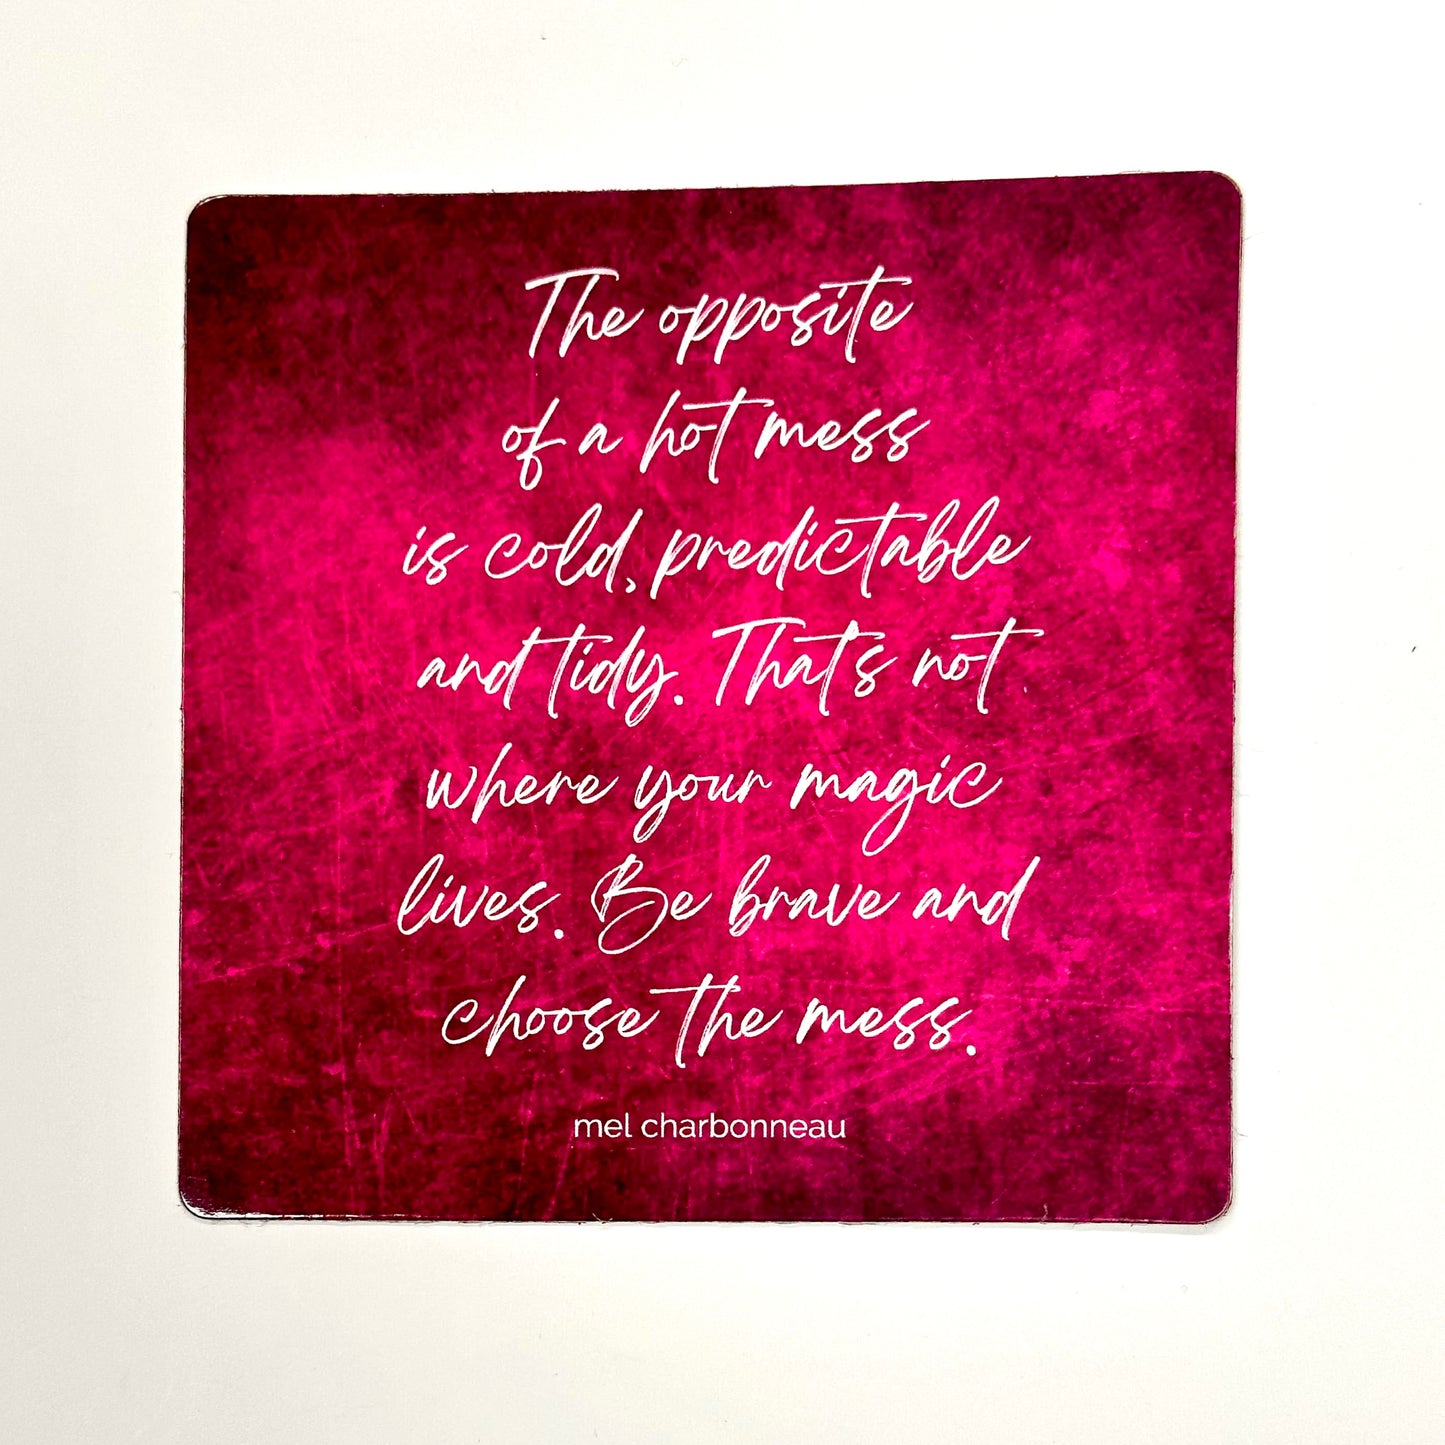 The opposite
of a hot mess
is cold, predictable
and tidy. That's not
where your magic
lives. Be brave and
choose the mess.
mel charbonneau